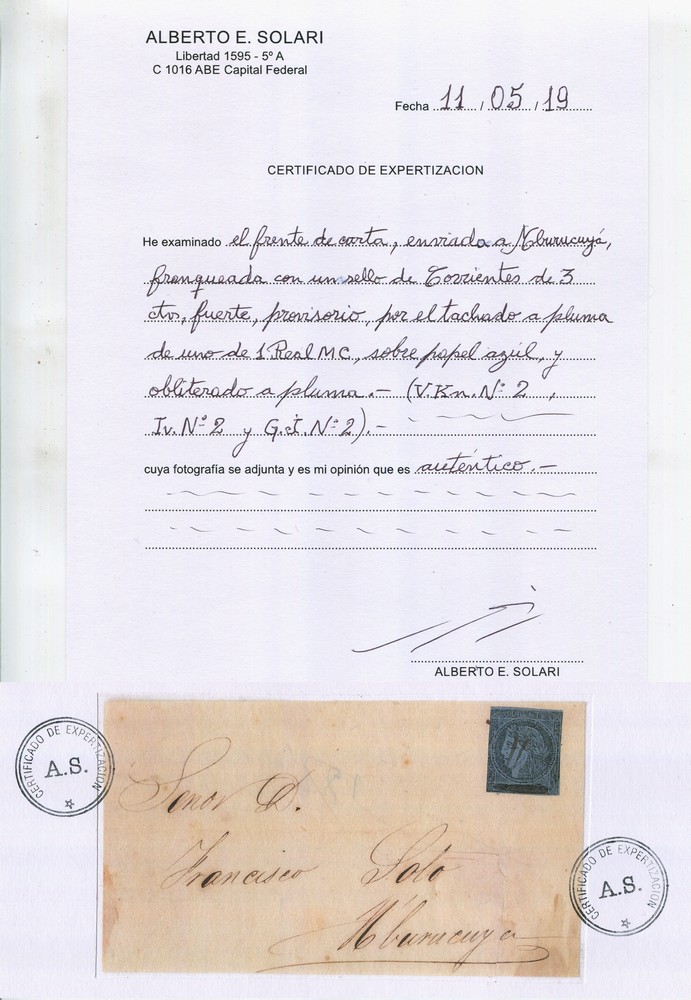 ALBERTO E. SOLARI
Libertad 1595 - 5º A
C 1016 ABE Capital Federal
Fecha 11 / 05 / 19
CERTIFICADO DE EXPERTIZACION
He examinado el frente de carta, enviada a Mburucuyá,
franqueada con un sello de Corrientes de 3
ctvs, fuerte, provisorio, por el tachado a pluma
de uno de 1 Real M.C., sobre papel azúl, y
obliterado a pluma.— (V.Kn. Nº 2 ,
Iv. Nº 2 y G.J. Nº 2).—
cuya fotografía se adjunta y es mi opinión que es auténtico.—
ALBERTO E. SOLARI
CERTIFICADO DE EXPERTIZACION
A.S.
Señor D.
Francisco Soto
Mburucuya
CERTIFICADO DE EXPERTIZACION
A.S.